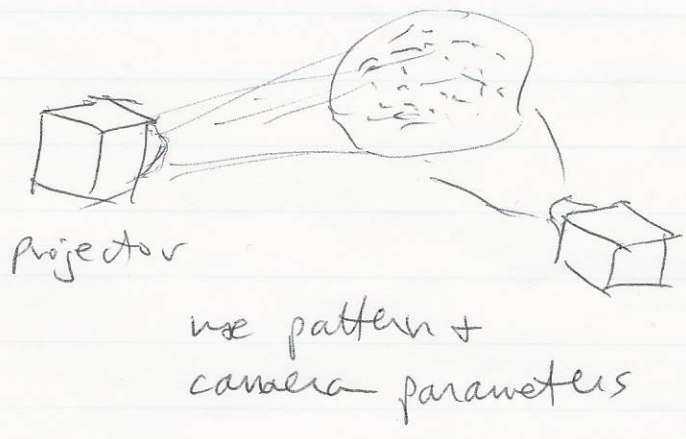 projector
use pattern +
camera parameters